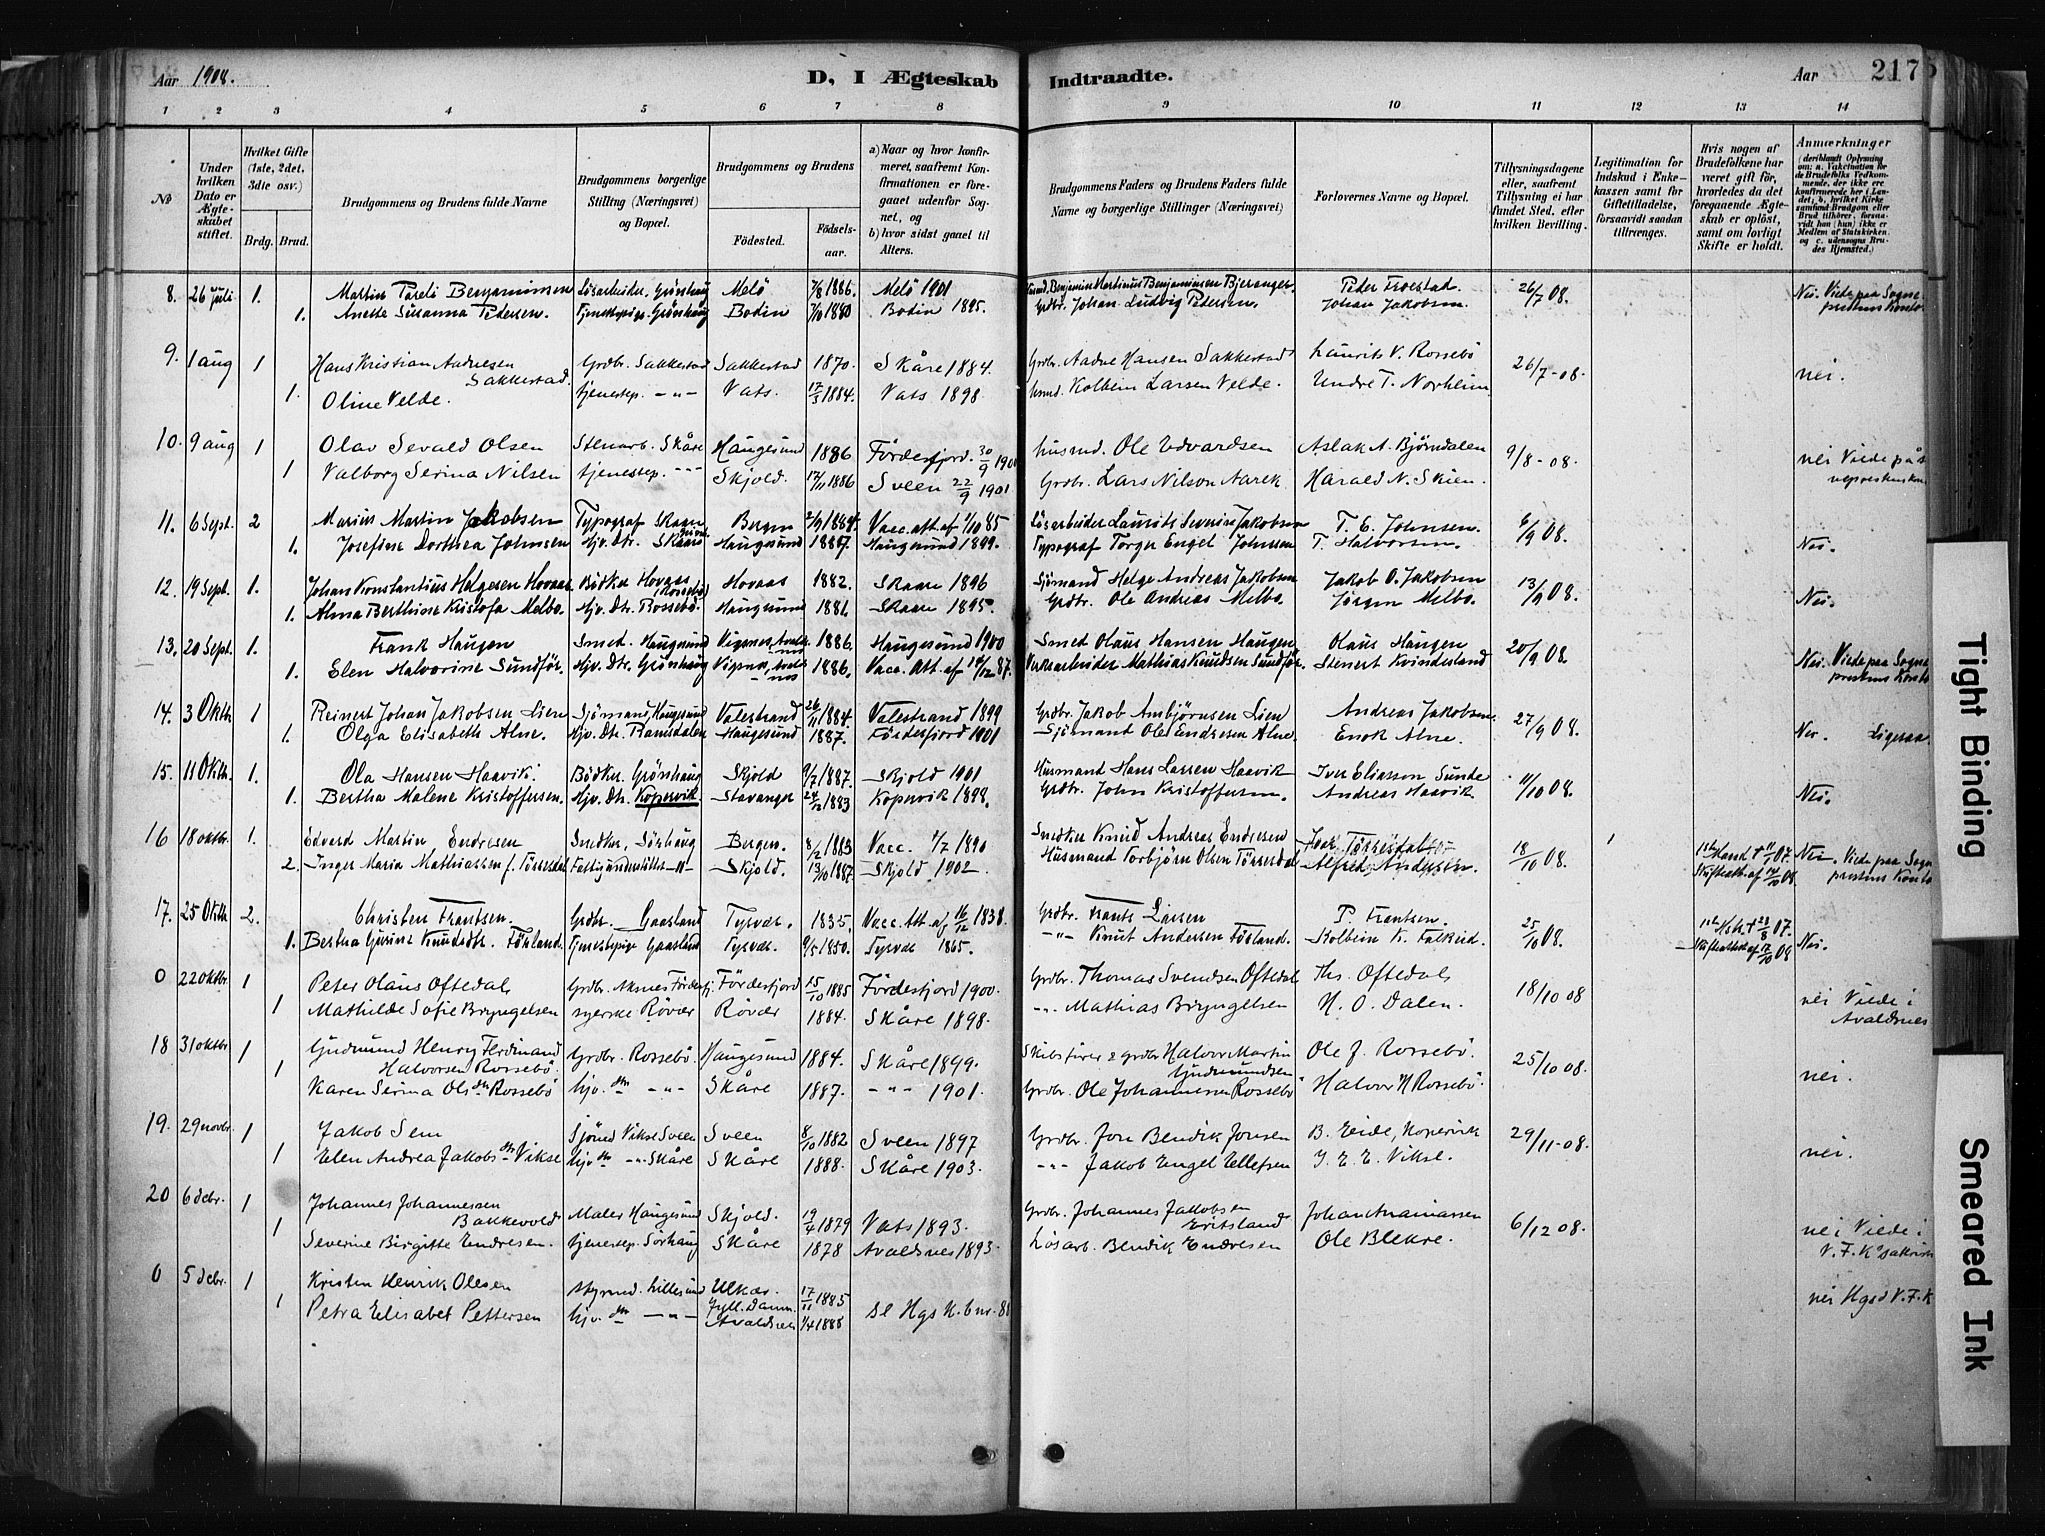 Aar 1908.
D, I Ægteskab Indtraadte.
Aar 217
1 2 3 4 5 6 7 8 9 10 11 12 13 14
No
Under hvilken Dato er Ægteskabet stiftet.
Hvilket Gifte (1ste, 2det, 3die osv.)
Brdg. Brud.
Brudgommens og Brudens fulde Navne
Brudgommens borgerlige Stilling (Næringsvei) og Bopæl.
Brudgommens og Brudens
Fødested. Fødselsaar.
a) Naar og hvor konfirmeret, saafremt Konfirmationen er foregaaet udenfor Sognet, og
b) hvor sidst gaaet til Alters.
Brudgommens Faders og Brudens Faders fulde Navne og borgerlige Stillinger (Næringsvei)
Forlovernes Navne og Bopæl.
Tillysningsdagene eller, saafremt Tillysning ei har fundet Sted, efter hvilken Bevilling.
Legitimation for Indskud i Enkekassen samt for Giftetilladelse, forsaavidt saadan tiltrænges.
Hvis nogen af Brudefolkene har været gift før, hvorledes da det foregaaende Ægteskab er opløst, samt om lovligt Skifte er holdt.
Anmærkninger
8. 26 Juli 1. Martin Pareli Benjaminsen Løsarbeider, Grønhaug Melø 7/8 1886. Melø 1901 Benjamin Martinus Benjaminsen Bjeranger. Peder Troestad 26/7 08. Nei. Viede paa Sogneprestens Kontor
1. Anette Susanna Pedersen. Tjenestepige, Grønhaug Bodin 7/10 1880 Bodin 1895. Grdbr. Johan Ludvig Pedersen. Johan Jakobsen
9. 1 aug 1 Hans Kristian Aadnesen Sakkestad. Grdbr. Sakkestad Sakkestad 1870. Skåre 1884. Grdbr. Aadne Hansen Sakkestad Laurits V. Rossebø 26/7-08. nei.
1. Oline Velde. tjenestep. -"- Vats. 17/3 1884. Vats 1898. husmd. Kolbein Larsen Velde. Undre T. Norheim
10. 9 aug 1 Olav Sevald Olsen Stenarb. Skåre Haugesund 1886 Førdesfjord. 30/9 190 husmd. Ole Edvardsen Aslak A. Bjørndalen 9/8-08. nei Viede på
1 Valborg Serina Nilsen tjenestep. -"- Skjold. 17/11 1886 Sveen 22/9 1901 Grdbr. Lars Nilson Aarek Harald N. Skien
11. 6 Sept. 2 Marius Martin Jakobsen Typograf Skaare Bergen 2/9 1884. Vacc. att. af 1/10 85 Løsarbeider Laurits Severin Jakobsen T. E. Johnsen. 6/9 08. Nei.
1. Josefine Dorthea Johnsen Hjv. Dtr. Skaare Haugesund 1887. Haugesund 1899. Typograf Torger Engel Johnsen T. Halvorsen.
12. 19 Sept. 1. Johan Konstantius Helgesen Hovaas Bødker Hovaas (Rossebø) Hovaas 1882. Skaare 1896 Sjømand Helge Andreas Jakobsen Jakob O. Jakobsen 13/9 08. Nei.
1. Alma Berthine Kristofa Melbø. Hjv. Dtr. Rossebø. Haugesund 1881. Skaare 1895. Grdbr. Ole Andreas Melbø. Jørgen Melbø.
13. 20 Sept. 1. Frank Haugen Smed. Haugesund Vigsnes, Avaldsnes 1886. Haugesund 1900 Smed Olaus Hansen Haugen Olaus Haugen 20/9 08. Nei. Viede paa Sogneprestens Kontor
1. Elen Halvorine Sundfør. Hjv. Dtr. Grønhaug Vigsnes, Avaldsnes 1886. Vacc. Att. af 14/12 87. Verksarbeider Mathias Knudsen Sundfør. Stenert Kvindesland
14. 3 Oktb 1 Reinert Johan Jakobsen Lien Sjømand, Haugesund Valestrand 26/11 1884. Valestrand 1899 Grdbr. Jakob Ambjørnsen Lien Andreas Jakobsen. 27/9 08. Nei. Ligesaa
1. Olga Elisabeth Alne. Hjv. Dtr. Ramsdalen Haugesund 1887. Førdesfjord 1901 Sjømand Ole Endresen Alne. Enok Alne.
15. 11 Oktb. 1. Ola Hansen Haavik. Bødker. Grønhaug Skjold 9/7 1887. Skjold 1901 Husmand Hans Larsen Haavik Iver Eliasson Sunde 11/10 08. Nei.
1. Bertha Malene Kristoffersen. Hjv. Dtr. Kopervik Stavanger 24/12 1883 Kopervik 1898. Grdbr. John Kristoffersen. Andreas Haavik
16 18 oktbr. 1. Edvard Martin Endresen Snedker, Sørhaug Bergen. 8/2 1883 Vacc. 1/7 1890 Snedker Knud Andreas Endresen 18/10 08. 1ste Mand † 11/1 07. Skifteatt. af 14/10 08 Nei. Viede paa Sogneprestens Kontor
2. Inger Maria Mathiassen f. Tørresdal Fattigunderstøttet -"- Skjold. 13/10 1887 Skjold 1902. Husmand Torbjørn Olsen Tørresdal Alfred Andersen.
17. 25 Oktb 2. Christen Frantsen. Grdbr. Gaasland Tysvær. 1835. Vacc. Att. af 16/12 1838. Grdbr. Frants Larsen P. Frantsen. 25/10 08. 1ste Hstr. † 23/8 07. Skifteattest af 17/10 08 Nei.
1. Bertha Gurine Knudsdtr. Førland. Tjenestepige Gaasland Tysvær. 9/5 1850. Tysvær 1865. -"- Knut Andersen Førland. Kolbein K. Falkeid.
0 22 oktbr. 1 Peter Olaus Oftedal Grdbr. Aksnes Førdesfj. Førdesfjord 15/10 1885 Førdesfjord 1900. Grdbr. Thomas Svendsen Oftedal Ths. Oftedal 18/10 08 nei Viede i Avaldsnes
1 Mathilde Sofie Bryngelsen syerske Røvær Røvær 1884. Skåre 1898. -"- Mathias Bryngelsen N. O. Dalen.
18 31 oktbr 1 Gudmund Henry Ferdinand Halvorsen Rossebø. Grdbr. Rossebø. Haugesund 1884. Skåre 1899. Skibsfører & grdbr Halvor Martin Gudmundsen Ole J. Rossebø. 25/10 08. nei.
1 Karen Serina Olsdtr Rossebø hjv. dtr -"- Skåre 1887. -"- 1901. Grdbr. Ole Johannessen Rossebø Halvor H Rossebø.
19. 29 novbr. 1 Jakob Sem Sjømd Vikse Sveen Sveen 8/10 1882 Sveen 1897 Grdbr. Jon Bendik Jonsen B. Eide, Kopervik 29/11-08. nei.
1 Elen Andrea Jakobsdtr Vikse hjv. dtr -"- Skåre Skåre 1888. Skåre 1903. -"- Jakob Engel Ellefsen J. E. E. Vikse.
20 6 debr. 1 Johannes Johannessen Bakkevold Maler Haugesund Skjold. 19/4 1879 Vats 1893. Grdbr. Johannes Jakobsen Eritsland Johan Ananiassen 6/12 08. nei Viede i V. F. K
1 Severine Birgitte Endresen. tjenestep. Sørhaug Skåre 1878 Avaldsnes 1893. Løsarb. Bendik Endresen Ole Blekre.
0 5 debr. 1 Kristen Henrik Olesen styrmd. Lillesund Ulkær. Jyll. Danm. 17/11 1885 se Hgs K. b nr. 8 nei Hgsd V. F. K
1 Petra Elisabet Pettersen hjv. dtr -"- Avaldsnes 1/4 1888
Tight Binding
Smeared Ink